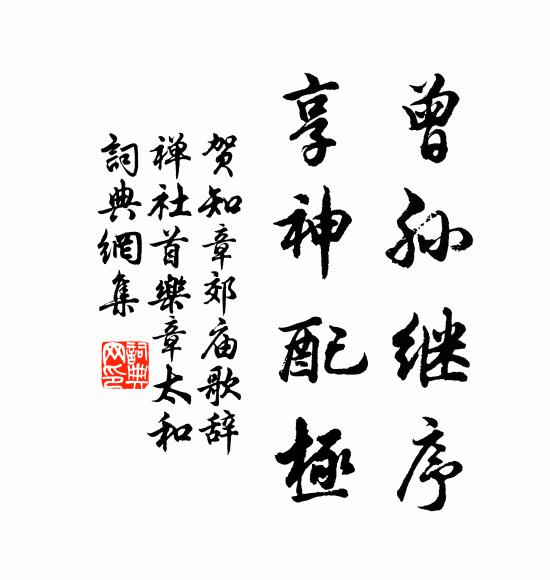 曾孙继序
享神配極
贺知章郊庙歌辞
禅社首樂章太和
詞典網集
詞典網印